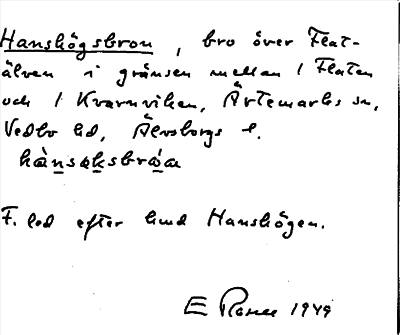 Hanshögsbron, bro över Flat-
älven i gränsen mellan 1 Flaten
och 1 Kvarnviken, Ärtemarks sn,
Vedbo hd, Älvsborgs l.
hànsaksbròa
F. led efter hmd Hanshögen.
E Rosen 1949